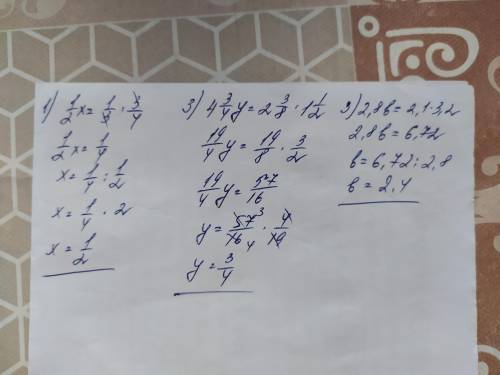 1) 1/2 x = 1/3 · 3/4
1/2 x = 1/4
x = 1/4 : 1/2
x = 1/4 · 2
x = 1/2
3) 4 3/4 y = 2 3/8 · 1 1/2
19/4 y = 19/8 · 3/2
19/4 y = 57/16
y = 57 3/16 4 · 4/19
y = 3/4
2) 2,8b = 2,1 · 3,2
2,8b = 6,72
b = 6,72 : 2,8
b = 2,4